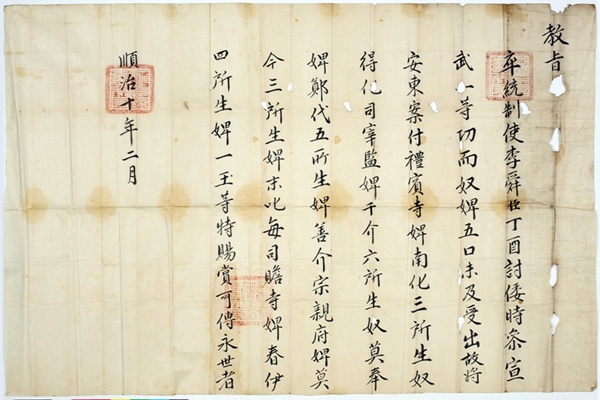 教旨
卒統制使李舜臣丁酉討倭時參宣
武一等功而奴婢五口未及受出故將
安東案付禮賓寺婢南化三所生奴
得化司宰監婢千介六所生奴莫奉
婢鄭代五所生婢善介宗親府婢莫
今三所生婢末叱每司贍寺婢春伊
四所生婢一玉等特賜賞可傳永世者
順治十年二月